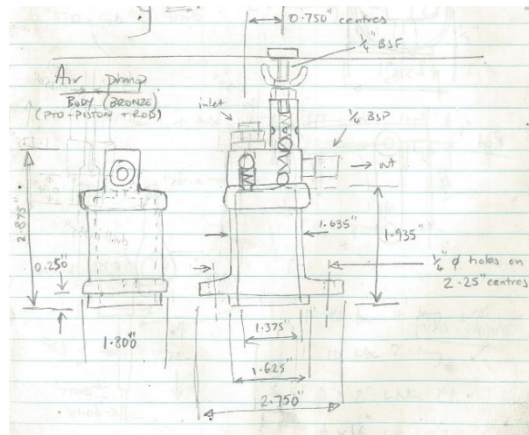 0.750" centres
1/4" BSF
Air pump
BODY (BRONZE)
(PTO - PISTON + ROD)
inlet
1/4 BSP
out
2.875"
0.250"
1.800"
1.635"
1.935"
1/4" ø holes on
2.25" centres
1.375"
1.625"
2.750"